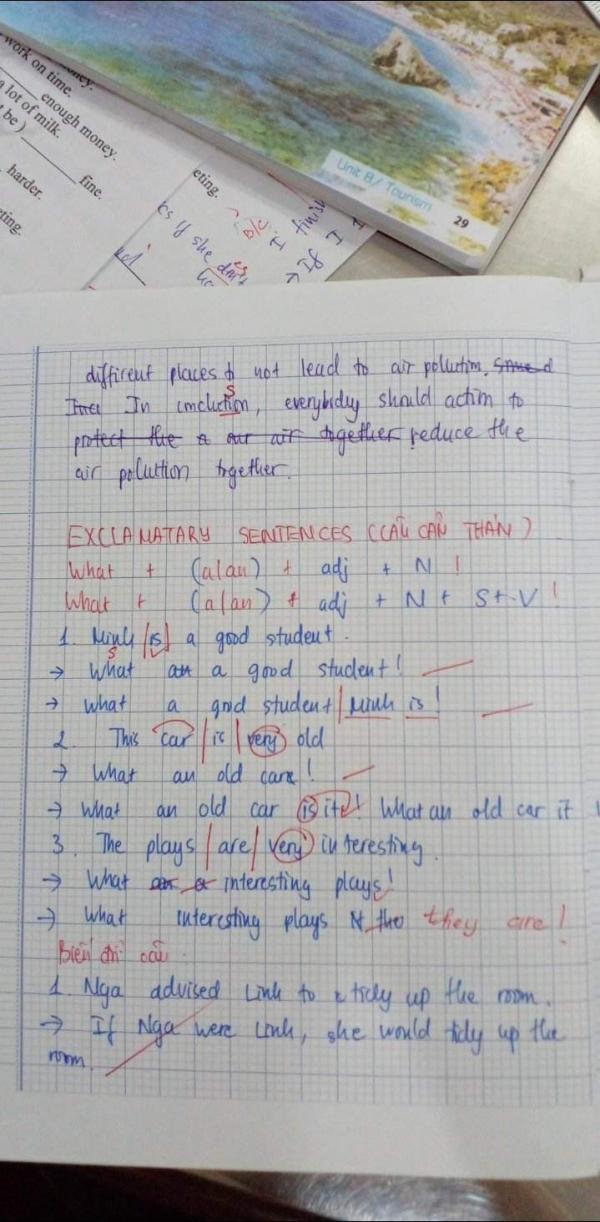 work on time.
enough money.
a lot of milk.
be)
fine.
harder.
eting.
eting.
Unit 8/ Tourism
29
different places & not lead to air pollution.
In conclution, everybidy should action to
s
protect the a air air together reduce the
air pollution together.
EXCLAMATARY SENTENCES (CÂU CẢN THÁN)
What + (a/an) + adj + N !
What + (a/an) + adj + N + S + V !
1. Minh is a good student.
S
→ What an a good student!
→ What a good student Minh is!
2. This car is very old
→ What an old care!
→ What an old car is it! What an old car it
3. The plays are very interesting.
→ What interesting plays!
→ What interesting plays they are!
Biến đổi câu
1. Nga advised Linh to tidy up the room.
→ If Nga were Linh, she would tidy up the
room.